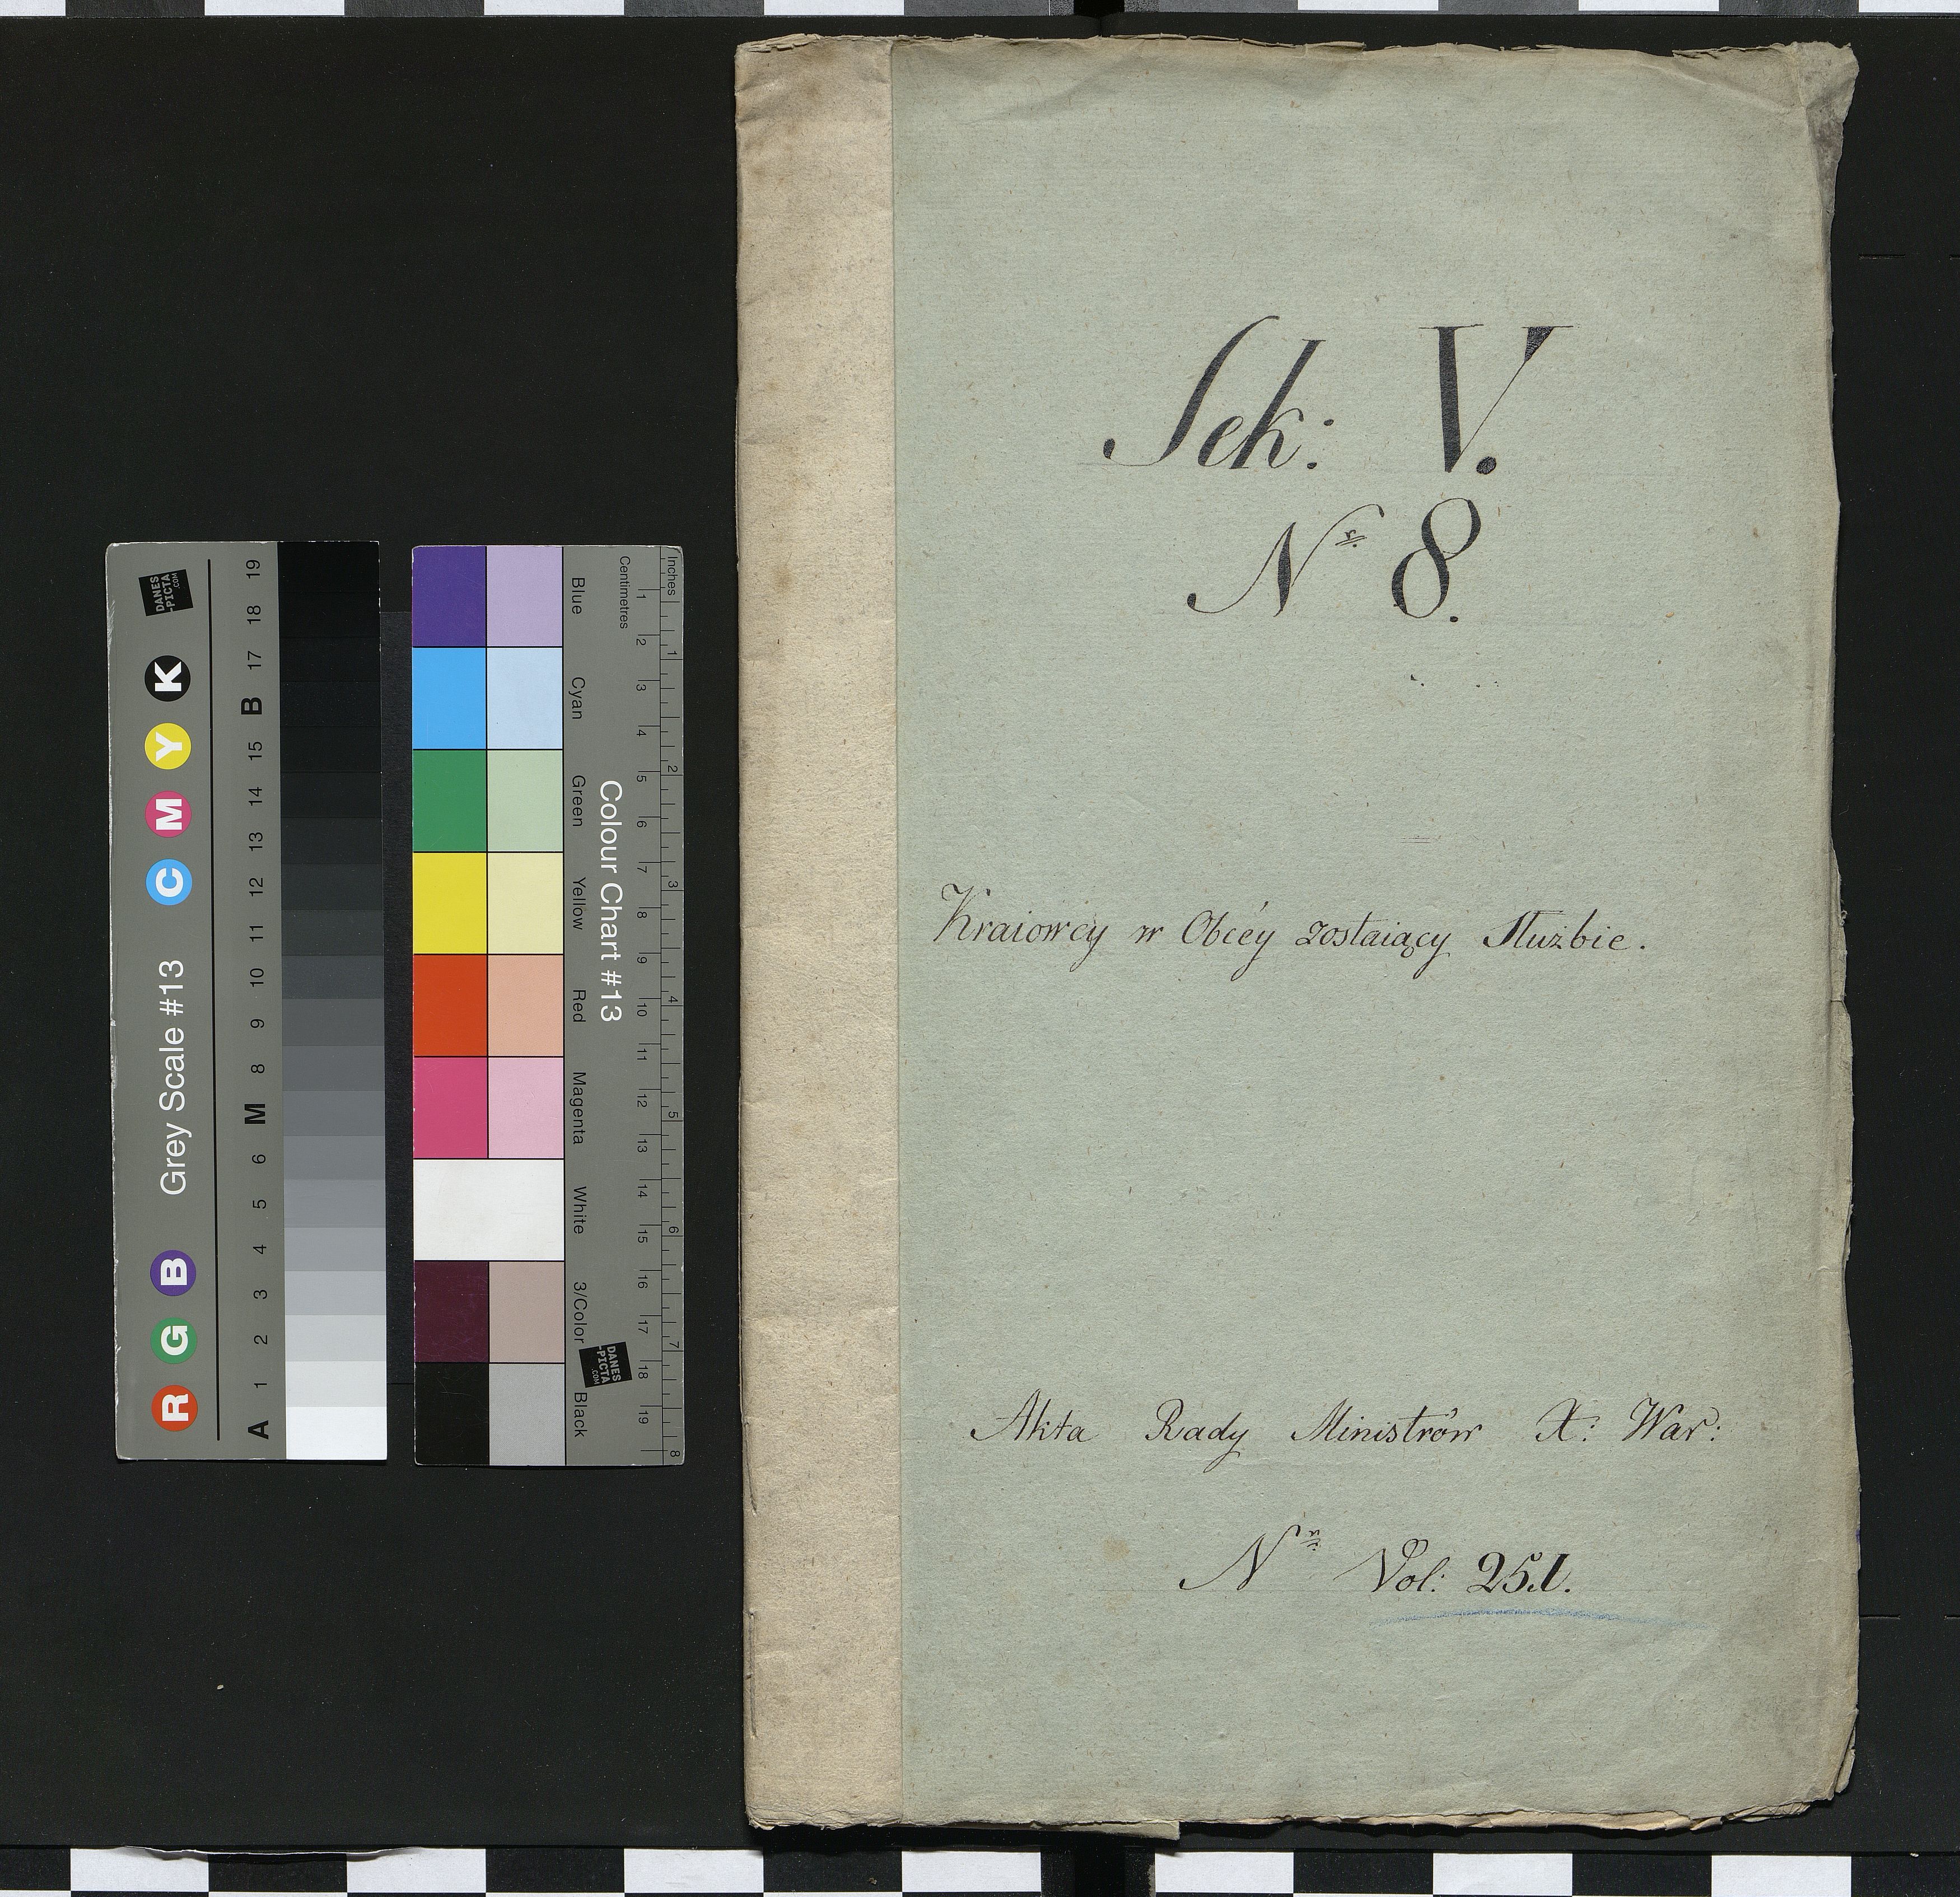 Sek: V.
Nº 8.
Kraiowcy w Obcéy zostaiący Służbie.
Akta Rady Ministrów X: War:
Nº Vol: 251.
Grey Scale #13
R G B C M Y K
A 1 2 3 4 5 6 M 8 9 10 11 12 13 14 15 B 17 18 19
DANES
-PICTA
.COM
Colour Chart #13
Blue Cyan Green Yellow Red Magenta White 3/Color Black
Centimetres 1 2 3 4 5 6 7 8 9 10 11 12 13 14 15 16 17 18 19
Inches 1 2 3 4 5 6 7 8
DANES
-PICTA
.COM